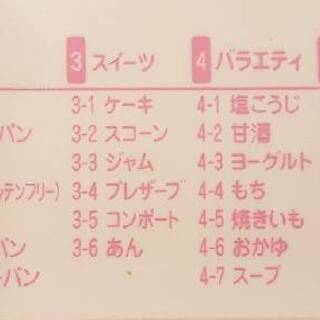 3 スイーツ
4 バラエティ
3-1 ケーキ
4-1 塩こうじ
パン
3-2 スコーン
4-2 甘酒
3-3 ジャム
4-3 ヨーグルト
テンフリー)
3-4 プレザーブ
4-4 もち
3-5 コンポート
4-5 焼きいも
パン
3-6 あん
4-6 おかゆ
パン
4-7 スープ